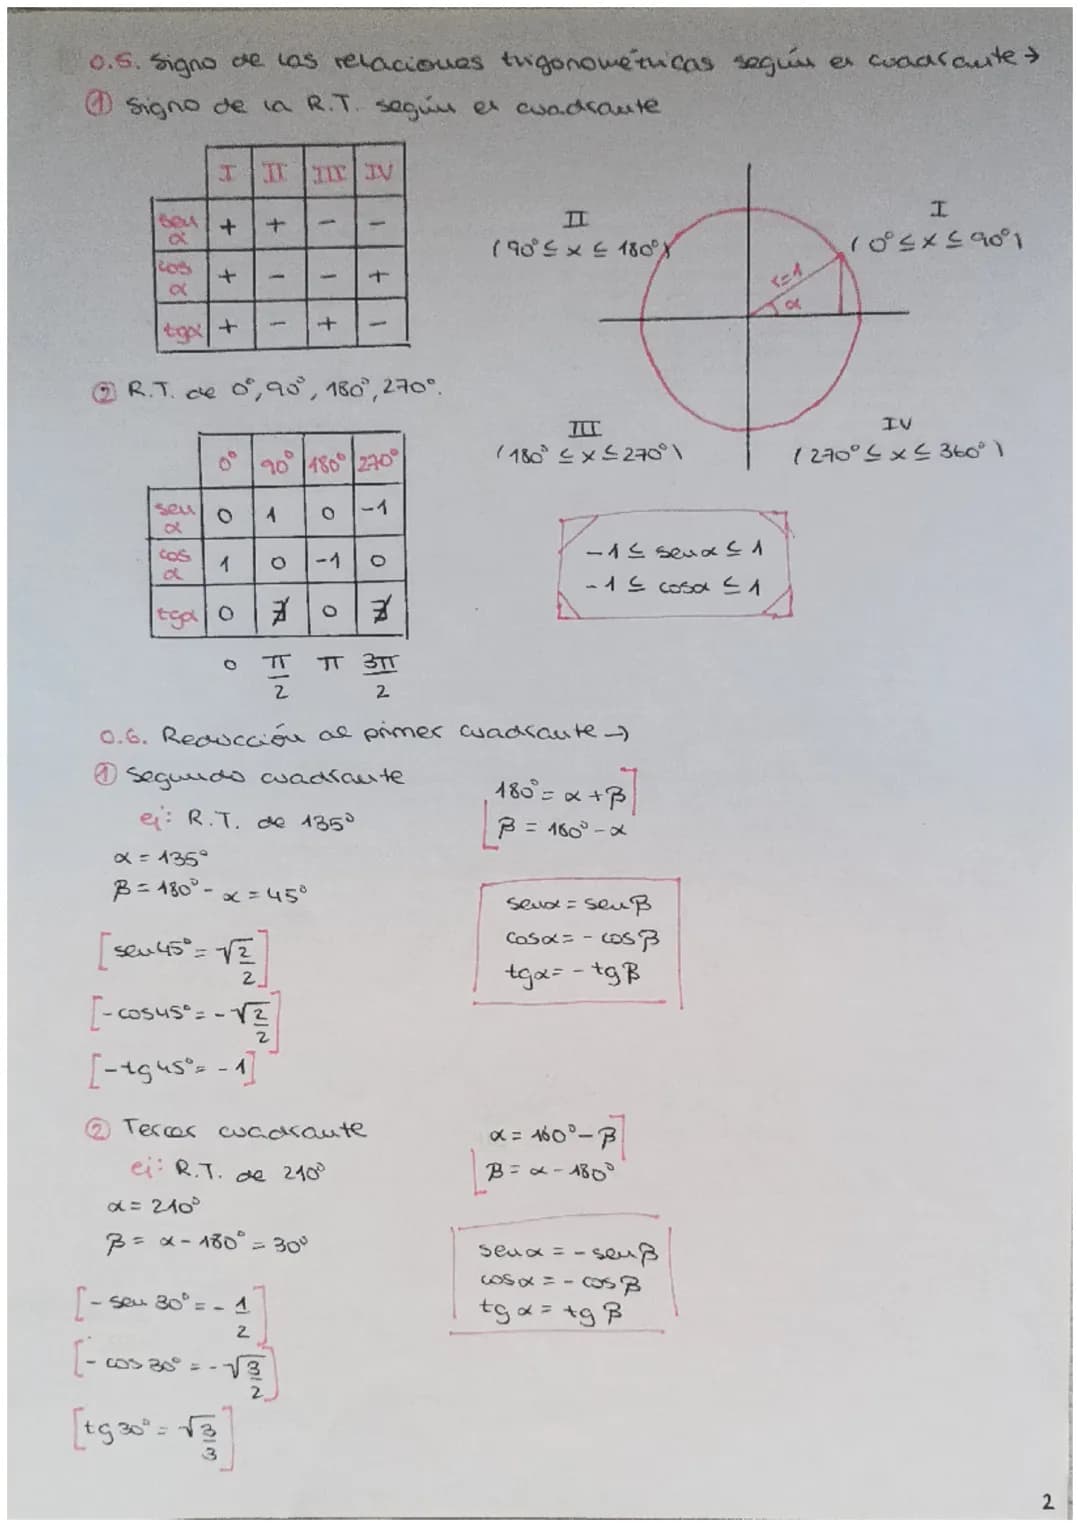 0.5. Signo de las relaciones trigonométricas según el cuadrante →
① Signo de la R.T. según el cuadrante
I II III IV
sen α + + - -
cos α + - - +
tgα + - + -
II
(90° ≤ x ≤ 180°)
I
(0° ≤ x ≤ 90°)
r=1
α
III
(180° ≤ x ≤ 270°)
IV
(270° ≤ x ≤ 360°)
② R.T. de 0°, 90°, 180°, 270°.
0° 90° 180° 270°
sen α 0 1 0 -1
cos α 1 0 -1 0
tgα 0 ∄ 0 ∄
0 π/2 π 3π/2
-1 ≤ senα ≤ 1
-1 ≤ cosα ≤ 1
0.6. Reducción al primer cuadrante →
① Segundo cuadrante
ej: R.T. de 135°
α = 135°
β = 180° - α = 45°
180° = α + β
β = 180° - α
[sen45° = √2/2]
[-cos45° = -√2/2]
[-tg45° = -1]
senα = senβ
cosα = - cosβ
tgα = - tgβ
② Tercer cuadrante
ej: R.T. de 210°
α = 210°
β = α - 180° = 30°
α = 180° - β
β = α - 180°
[- sen 30° = - 1/2]
[- cos 30° = - √3/2]
[tg 30° = √3/3]
senα = - senβ
cosα = - cosβ
tgα = tgβ
2